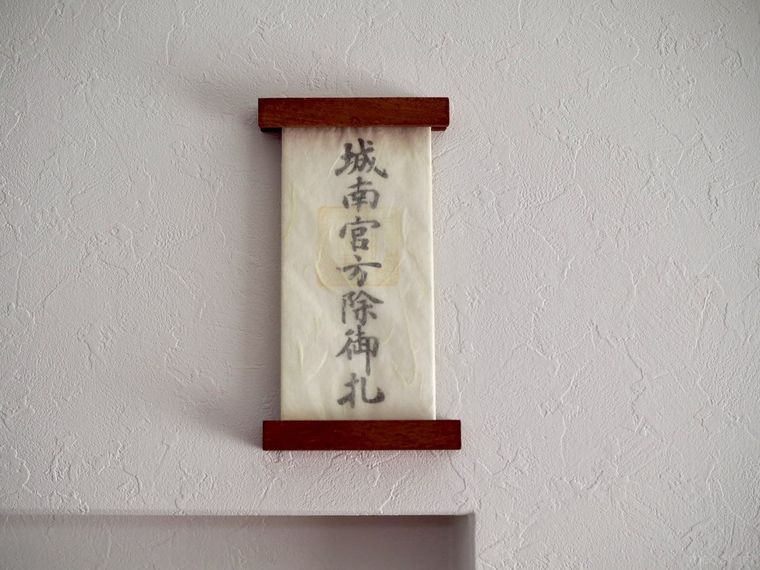 城南宮方除御札